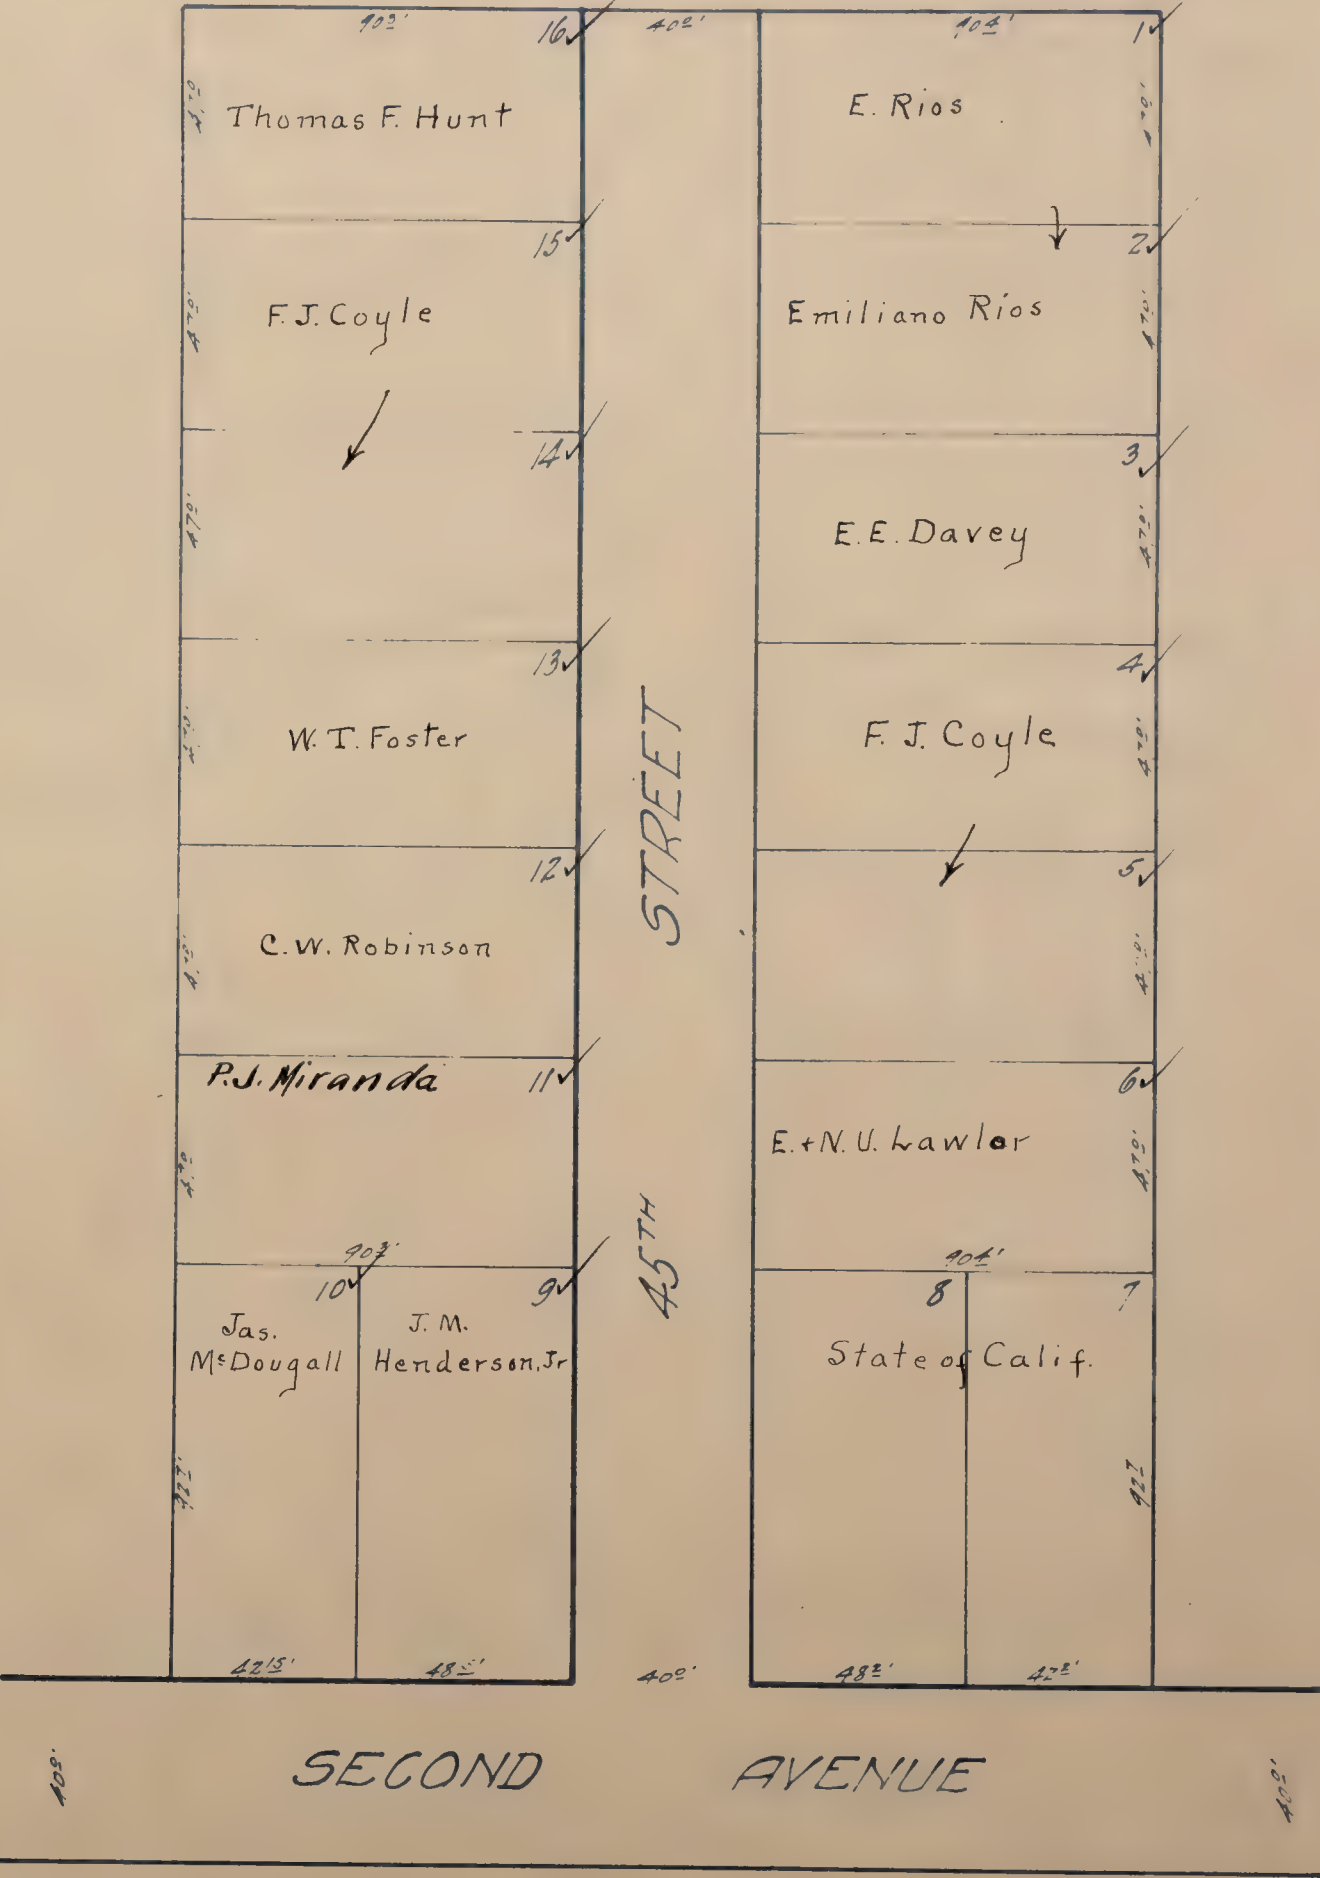 90³'
16
40⁰'
90⁴'
1
Thomas F. Hunt
E. Rios
47⁰'
47⁰'
15
2
F. J. Coyle
Emiliano Rios
47⁰'
47⁰'
14
3
47⁰'
E. E. Davey
47⁰'
13
4
W. T. Foster
F. J. Coyle
47⁰'
47⁰'
12
5
C. W. Robinson
47⁰'
47⁰'
P. J. Miranda
11
6
E. + N. U. Lawlor
47⁰'
47⁰'
45TH STREET
90⁴'
10
9
8
7
Jas.
McDougall
J. M.
Henderson, Jr
State of Calif.
42¹⁵'
40⁰'
48²'
42²'
SECOND AVENUE
40⁰'
40⁰'